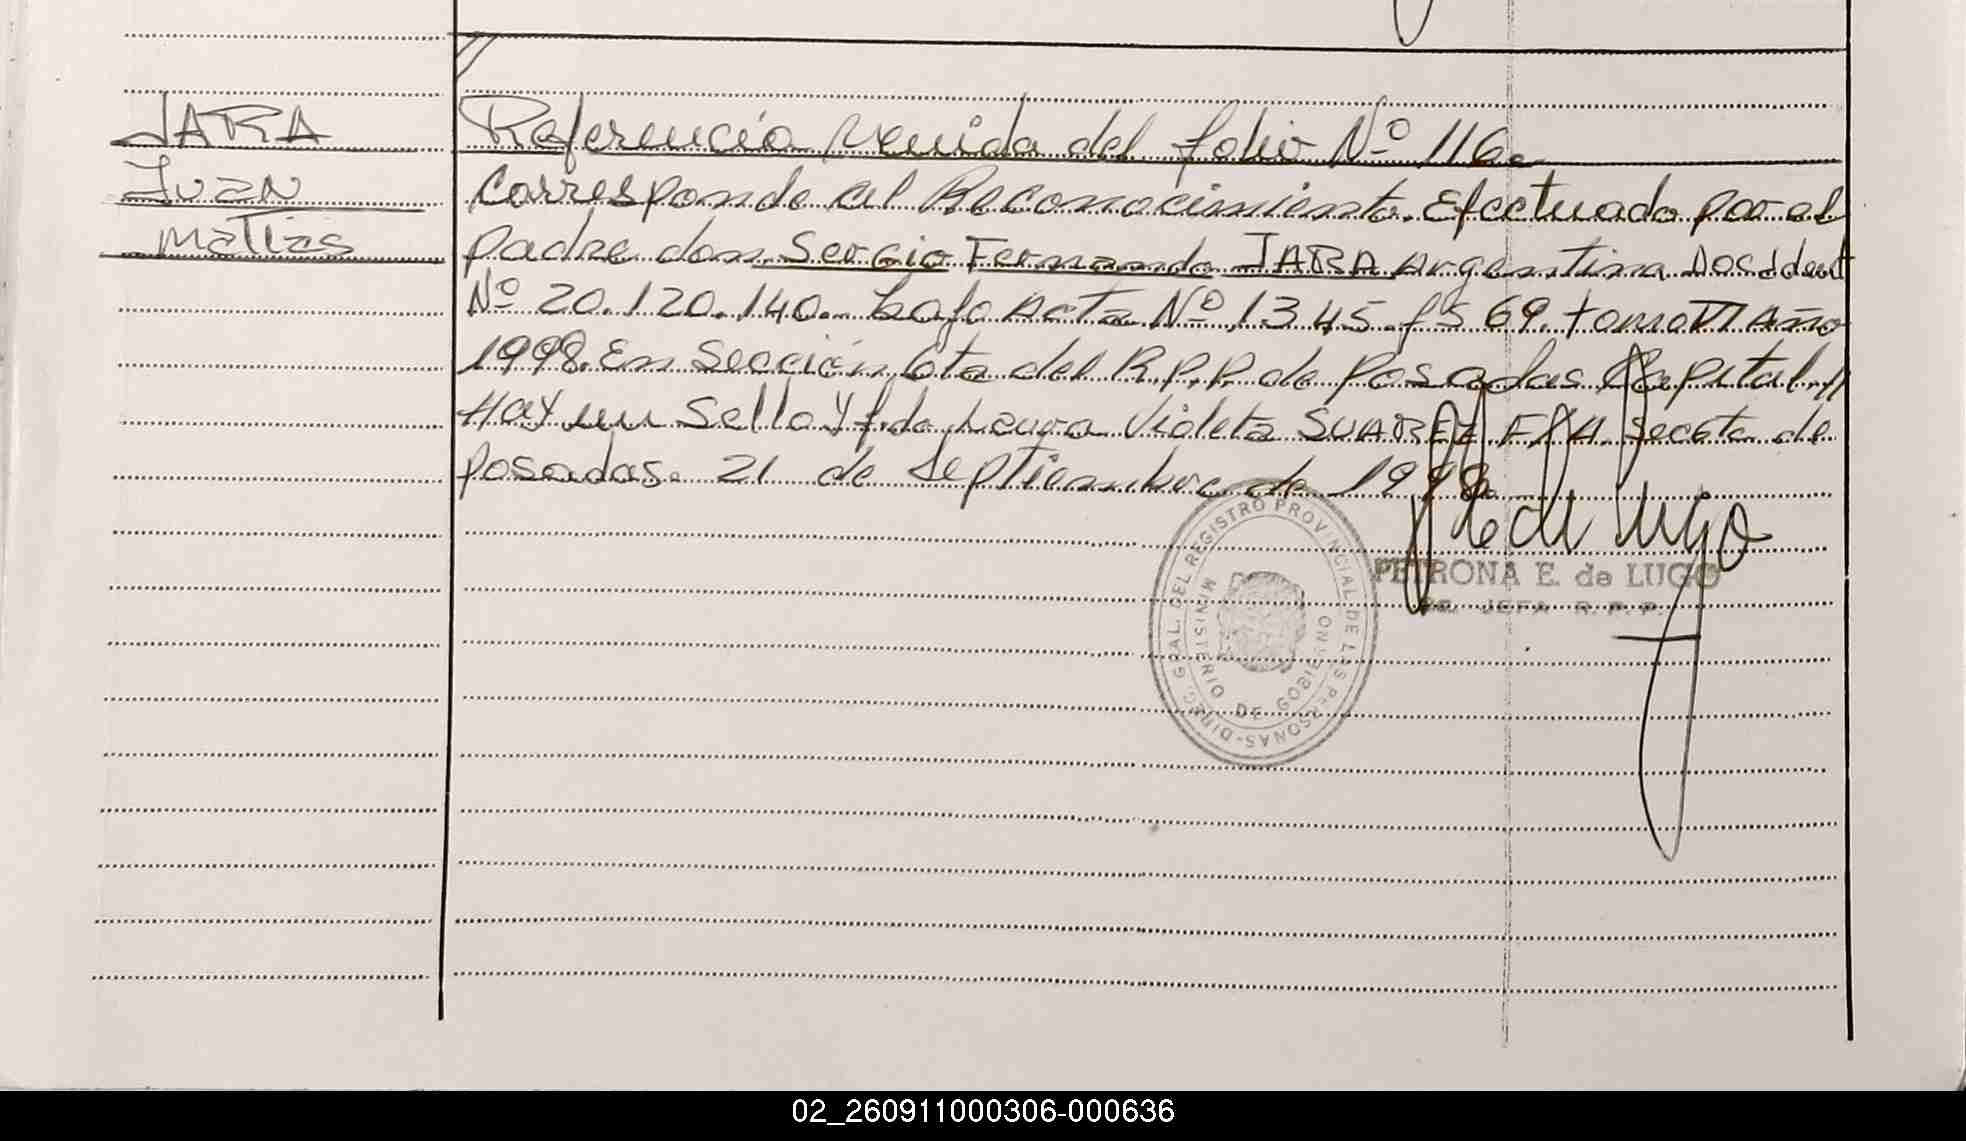 JARA
Juan
Matias
Referencia venida del folio Nº 116.
Corresponde al Reconocimiento. Efectuado por el
padre don Sergio Fernando JARA Argentina Doc Ident
Nº 20.120.140.- bajo Acta Nº 1345. fs 69. tomo VI Año
1998. En Sección 6ta del R.P.P. de Posadas Capital.//
Hay un Sello y fdo Laura Violeta SUAREZ Secta de
Posadas. 21 de Septiembre de 1998.
PETRONA E. de LUGO
JEFA R. P. P.
DIREC. GRAL. DEL REGISTRO PROVINCIAL DE LAS PERSONAS-
MINISTERIO DE GOBIERNO
02_260911000306-000636